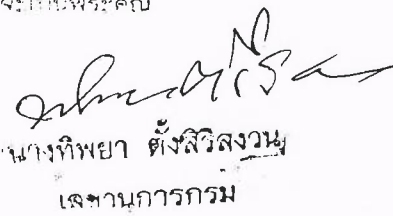 จะเป็นพระคุณ
นางทิพยา ตั้งสิริสงวน
เลขานุการกรม